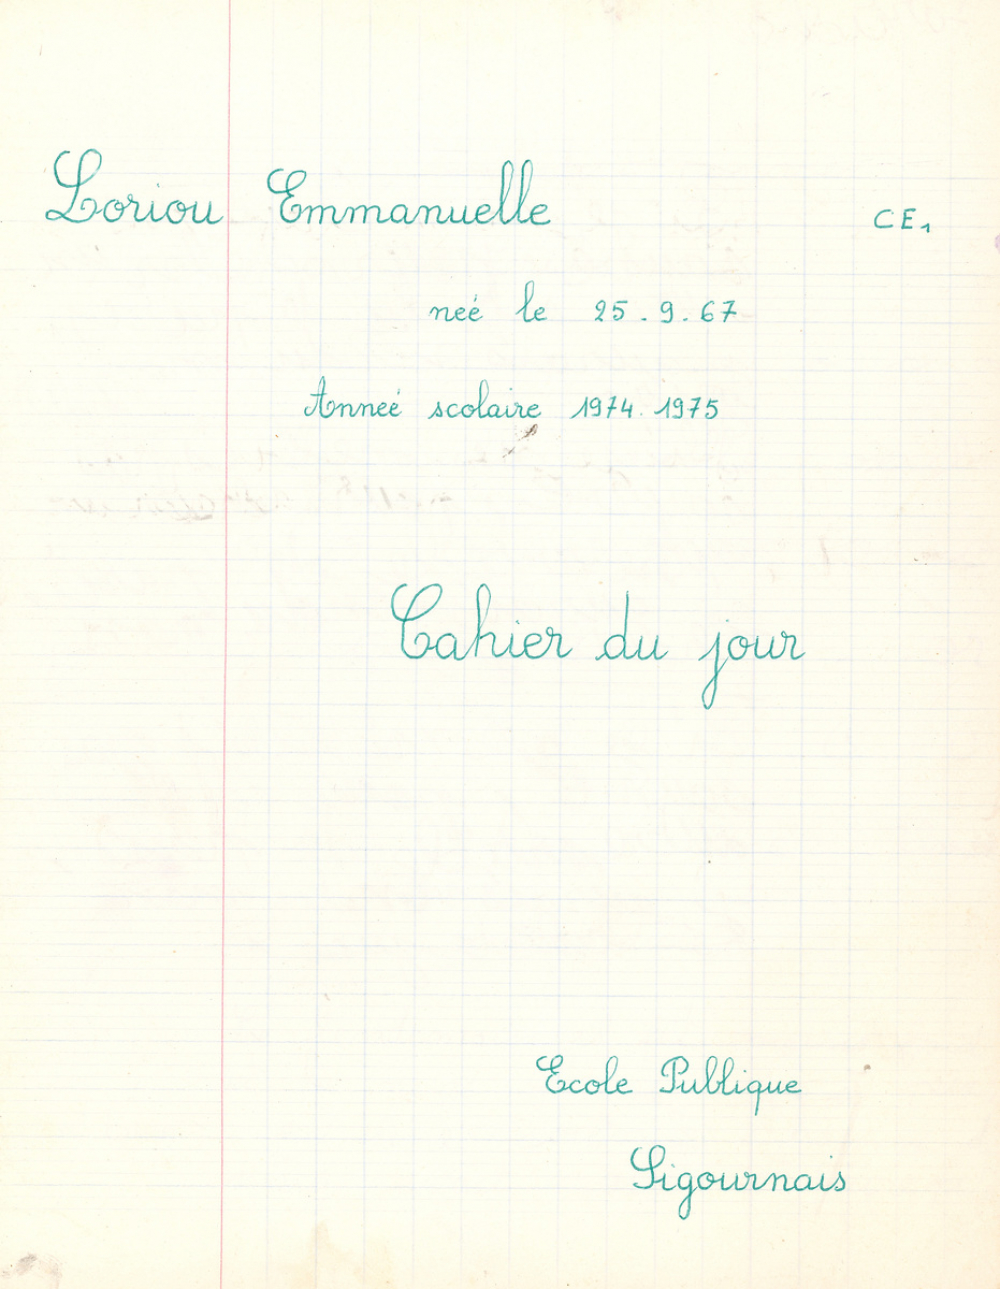 Loriou Emmanuelle CE1
neé le 25.9.67
Anneé scolaire 1974.1975
Cahier du jour
Ecole Publique
Sigournais